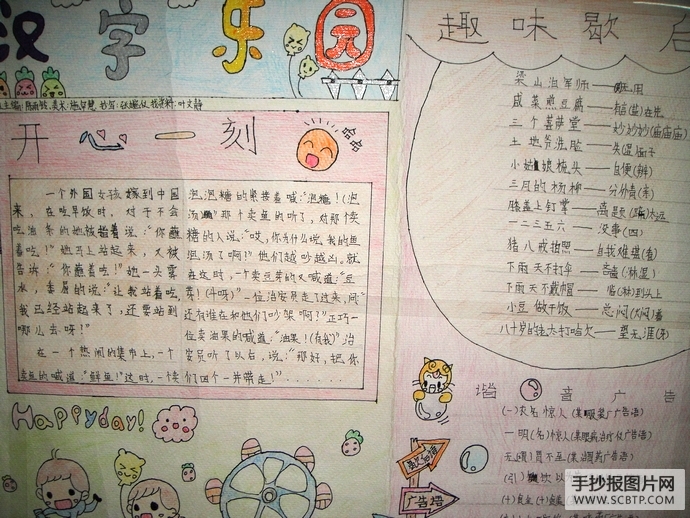 汉字乐园
开心一刻
哈哈
一个外国女孩嫁到中国
来，在吃早饭时，对于不会
吃油条的她被指着说：“你蘸
着吃！”她马上站起来，又被
告诉：“你蘸着吃！”她一头雾
水，委屈的说：“让我站着吃，
我已经站起来了，还要站到
哪儿去呀？”
在一个热闹的集市上，一个
卖鱼的喊道：“鲜鱼！”这时，一卖
泡泡糖的紧接着喊：“泡糖！(泡
汤)”那个卖鱼的听了，对那卖
糖的人说：“哎，你为什么说我的鱼
泡汤了啊！”他们越吵越凶。就
在这时，一个卖豆芽的又喊道：“豆
芽！(斗呀)”一位治安员走了过来，问
还有谁在和他们吵架啊？”正巧一
位卖油果的喊道：“油果！(有我)”治
安员听了以后，说：“那好，把你
们四个一并带走！”......
Happyday!
趣味歇后
梁山泊军师——无用
咸菜煎豆腐——有言(盐)在先
三个菩萨堂——妙妙妙(庙庙庙)
土地爷洗脸——失(湿)面子
小姑娘梳头——自便(辫)
三月的杨柳——分外青(亲)
膝盖上钉掌——离题(蹄)太远
一二三五六——没事(四)
猪八戒拍照——自我难堪(看)
下雨天不打伞——吝啬(淋湿)
下雨天不戴帽——临(淋)到头上
小豆做干饭——总闷(焖)着
八十岁的老太打哈欠——望无涯(牙)
谐音广告
(一)衣名惊人(某服装广告语)
一明(名)惊人(某眼药治疗仪广告语)
无
(引)饮以
歇后语
广告墙
手抄报图片网
WWW.SCBTP.COM